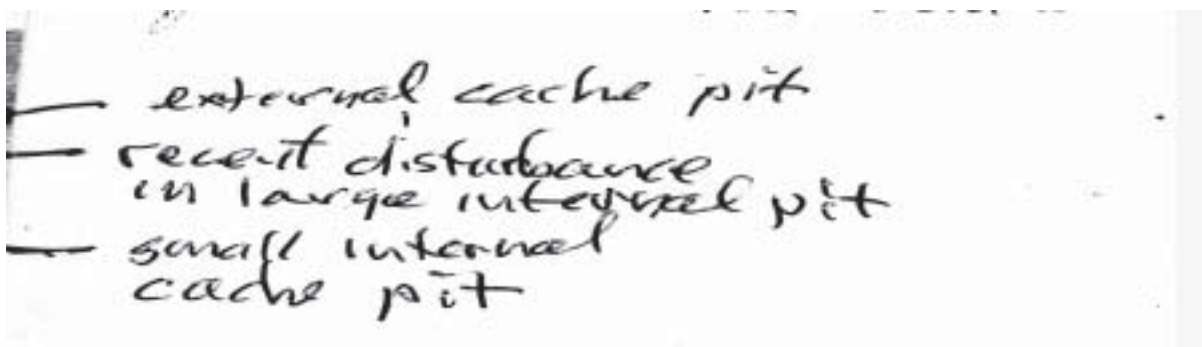 external cache pit
recent disturbance
in large internal pit
small internal
cache pit